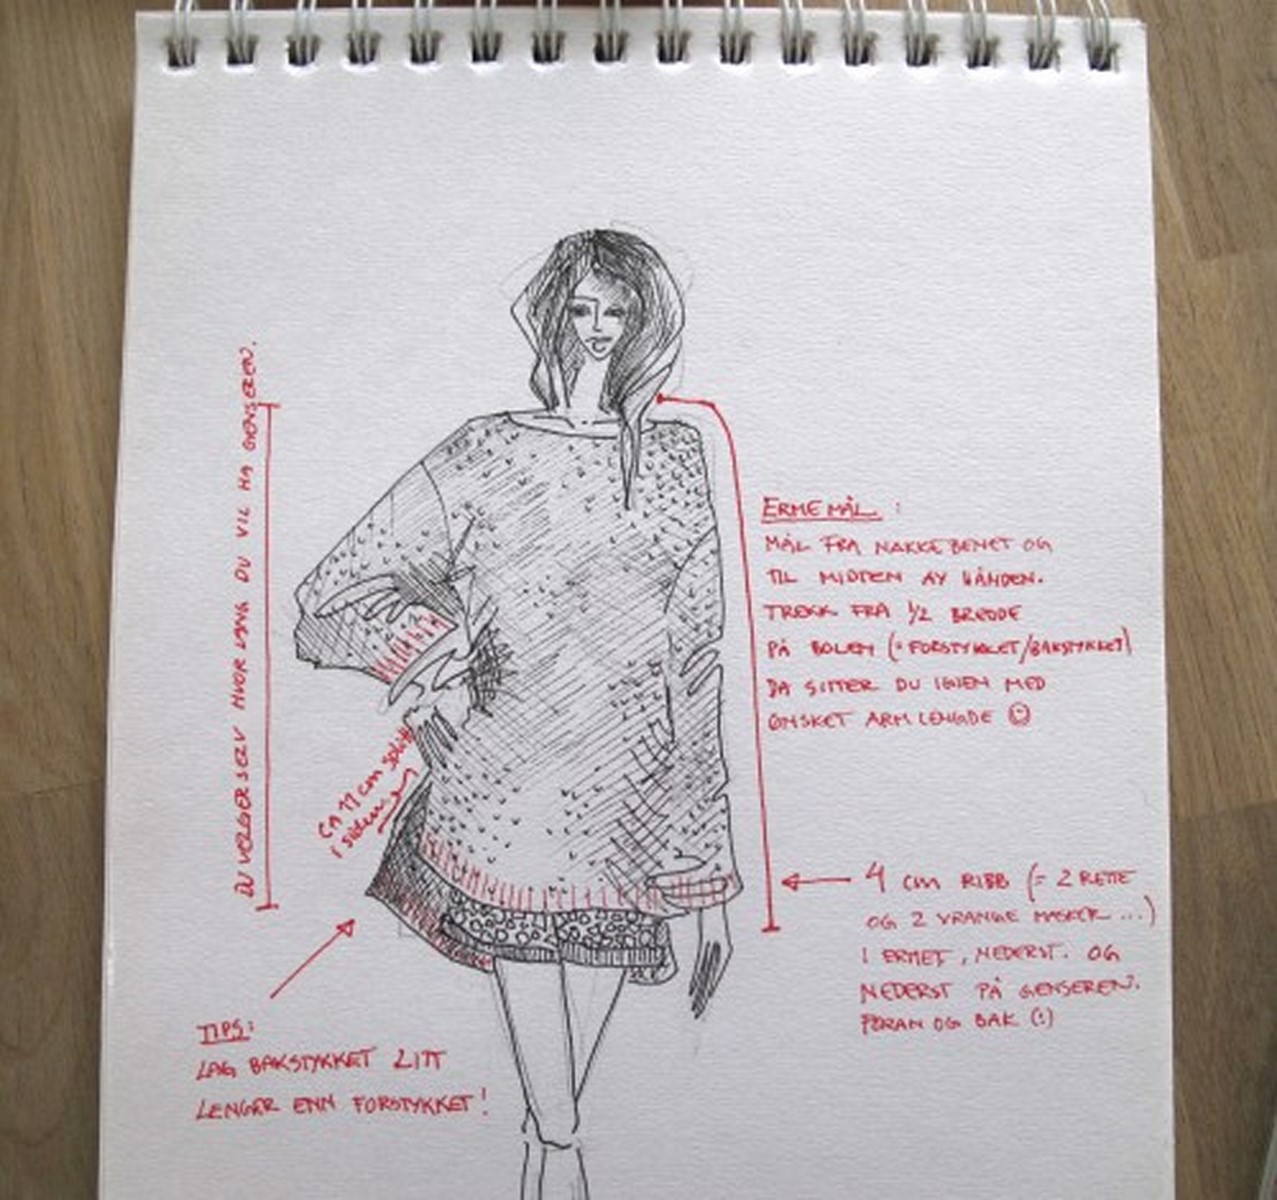 DU VELGER SELV HVOR LANG DU VIL HA GENSEREN.
ERMEMÅL :
MÅL FRA NAKKEBENET OG
TIL MIDTEN AV HÅNDEN.
TREKK FRA 1/2 BREDDE
PÅ BOLEN (= FORSTYKKET/BAKSTYKKET)
DA SITTER DU IGJEN MED
ØNSKET ARMLENGDE ☺
CA 11 cm splitt
i siden
4 cm RIBB (= 2 RETTE
OG 2 VRANGE MASKER ...)
I ERMET, NEDERST. OG
NEDERST PÅ GENSEREN.
FORAN OG BAK (:)
TIPS:
LAG BAKSTYKKET LITT
LENGER ENN FORSTYKKET!